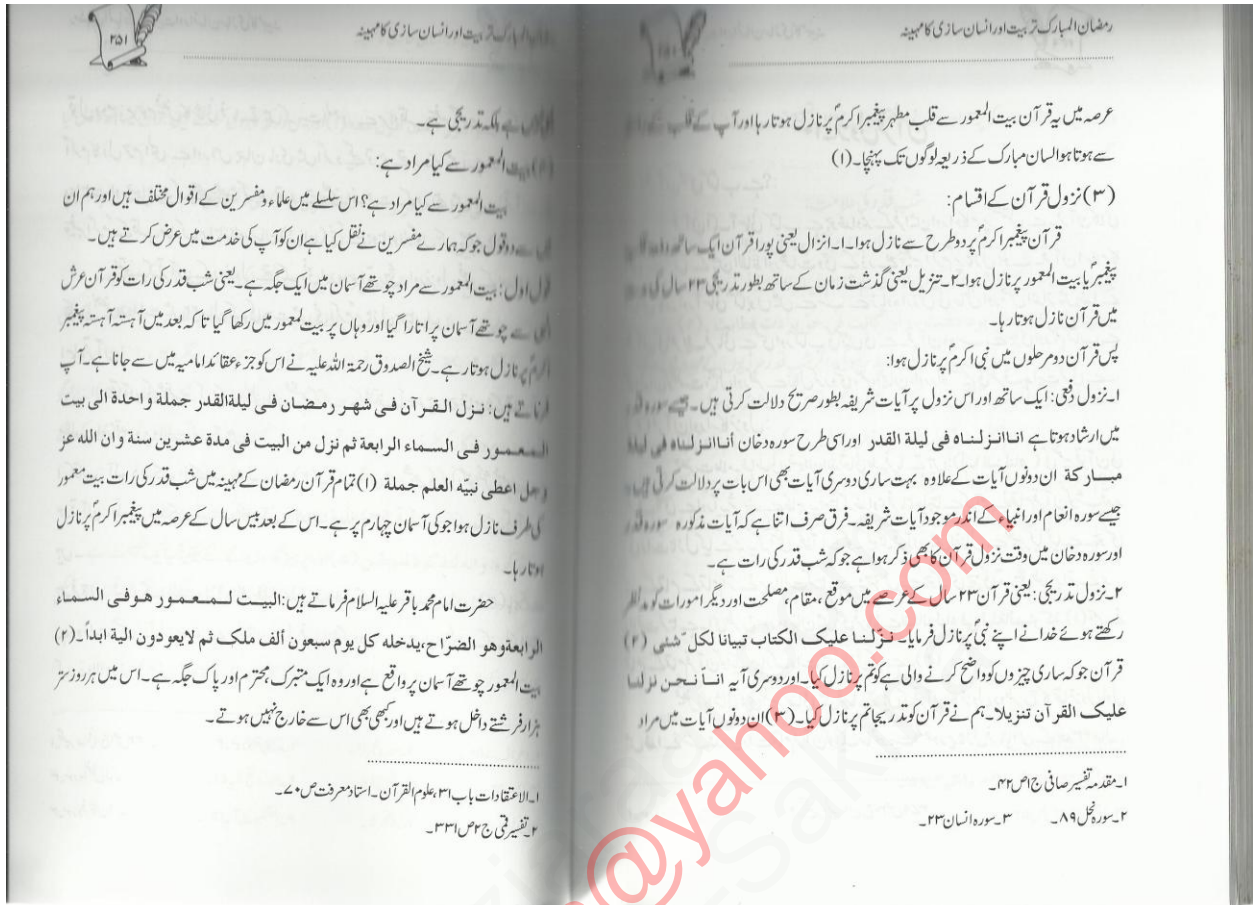 رمضان المبارک تربیت اور انسان سازی کا مہینہ
عرصہ میں یہ قرآن بیت المعمور سے قلب مطہر پیغمبر اکرمؐ پر نازل ہوتا رہا اور آپ کے قلب
سے ہوتا ہوا لسان مبارک کے ذریعہ لوگوں تک پہنچا۔ (۱)
(۳) نزول قرآن کے اقسام:
قرآن پیغمبر اکرمؐ پر دو طرح سے نازل ہوا۔ ۱۔ انزال یعنی پورا قرآن ایک ساتھ
پیغمبرؐ یا بیت المعمور پر نازل ہوا۔ ۲۔ تنزیل یعنی گذشت زمان کے ساتھ بطور تدریجی ۲۳ سال کی
میں قرآن نازل ہوتا رہا۔
پس قرآن دو مرحلوں میں نبی اکرمؐ پر نازل ہوا:
۱۔ نزول دفعی: ایک ساتھ اور اس نزول پر آیات شریفہ بطور صریح دلالت کرتی ہیں۔ جیسے سورہ
میں ارشاد ہوتا ہے انا انزلناه فی لیلة القدر اور اسی طرح سورہ دخان أنا انزلناه فی لیلة
مبارکة ان دونوں آیات کے علاوہ بہت ساری دوسری آیات بھی اس بات پر دلالت کرتی ہیں
جیسے سورہ انعام اور انبیاء کے اندر موجود آیات شریفہ۔ فرق صرف اتنا ہے کہ آیات مذکورہ سورہ قدر
اور سورہ دخان میں وقت نزول قرآن کا بھی ذکر ہوا ہے جو کہ شب قدر کی رات ہے۔
۲۔ نزول تدریجی: یعنی قرآن ۲۳ سال کے عرصے میں موقع، مقام، مصلحت اور دیگر امورات کو مدنظر
رکھتے ہوئے خدا نے اپنے نبیؐ پر نازل فرمایا۔ نزّلنا علیک الکتاب تبیانا لکل شئی (۲)
قرآن جو کہ ساری چیزوں کو واضح کرنے والی ہے کو تم پر نازل کیا۔ اور دوسری آیہ انأ نحن نزلنا
علیک القرآن تنزیلا۔ ہم نے قرآن کو تدریجا تم پر نازل کیا۔ (۳) ان دونوں آیات میں مراد
۱۔ مقدمہ تفسیر صافی ج ۱ ص ۴۲۔
۲۔ سورہ نحل ۸۹۔ ۳۔ سورہ انسان ۲۳۔
المبارک تربیت اور انسان سازی کا مہینہ
۲۵۱
ہے بلکہ تدریجی ہے۔
بیت المعمور سے کیا مراد ہے:
بیت المعمور سے کیا مراد ہے؟ اس سلسلے میں علماء و مفسرین کے اقوال مختلف ہیں اور ہم ان
میں سے دو قول جو کہ ہمارے مفسرین نے نقل کیا ہے ان کو آپ کی خدمت میں عرض کرتے ہیں۔
قول اول: بیت المعمور سے مراد چوتھے آسمان میں ایک جگہ ہے۔ یعنی شب قدر کی رات کو قرآن عرش
سے چوتھے آسمان پر اتارا گیا اور وہاں پر بیت لمعمور میں رکھا گیا تا کہ بعد میں آہستہ آہستہ پیغمبر
اکرمؐ پر نازل ہوتا رہے۔ شیخ الصدوق رحمۃ اللہ علیہ نے اس کو جزء عقائد امامیہ میں سے جانا ہے۔ آپ
فرماتے ہیں: نزل القرآن فی شهر رمضان فی لیلةالقدر جملة واحدة الی بیت
المعمور فی السماء الرابعة ثم نزل من البیت فی مدة عشرین سنة وان الله عز
وجل اعطی نبیّه العلم جملة (۱) تمام قرآن رمضان کے مہینہ میں شب قدر کی رات بیت معمور
کی طرف نازل ہوا جو کی آسمان چہارم پر ہے۔ اس کے بعد بیس سال کے عرصہ میں پیغمبر اکرمؐ پر نازل
ہوتا رہا۔
حضرت امام محمد باقر علیہ السلام فرماتے ہیں: البیت لمعمور هو فی السماء
الرابعةوهو الضرّاح،یدخله کل یوم سبعون ألف ملک ثم لایعودون الیة ابداً۔ (۲)
بیت المعمور چوتھے آسمان پر واقع ہے اور وہ ایک متبرک محترم اور پاک جگہ ہے۔ اس میں ہر روز ستر
ہزار فرشتے داخل ہوتے ہیں اور کبھی بھی اس سے خارج نہیں ہوتے۔
۱۔ الاعتقادات باب ۳۱، علوم القرآن۔ استاد معرفت ص ۷۰۔
۲۔ تفسیر قمی ج ۲ ص ۳۳۱۔
@yahoo.com